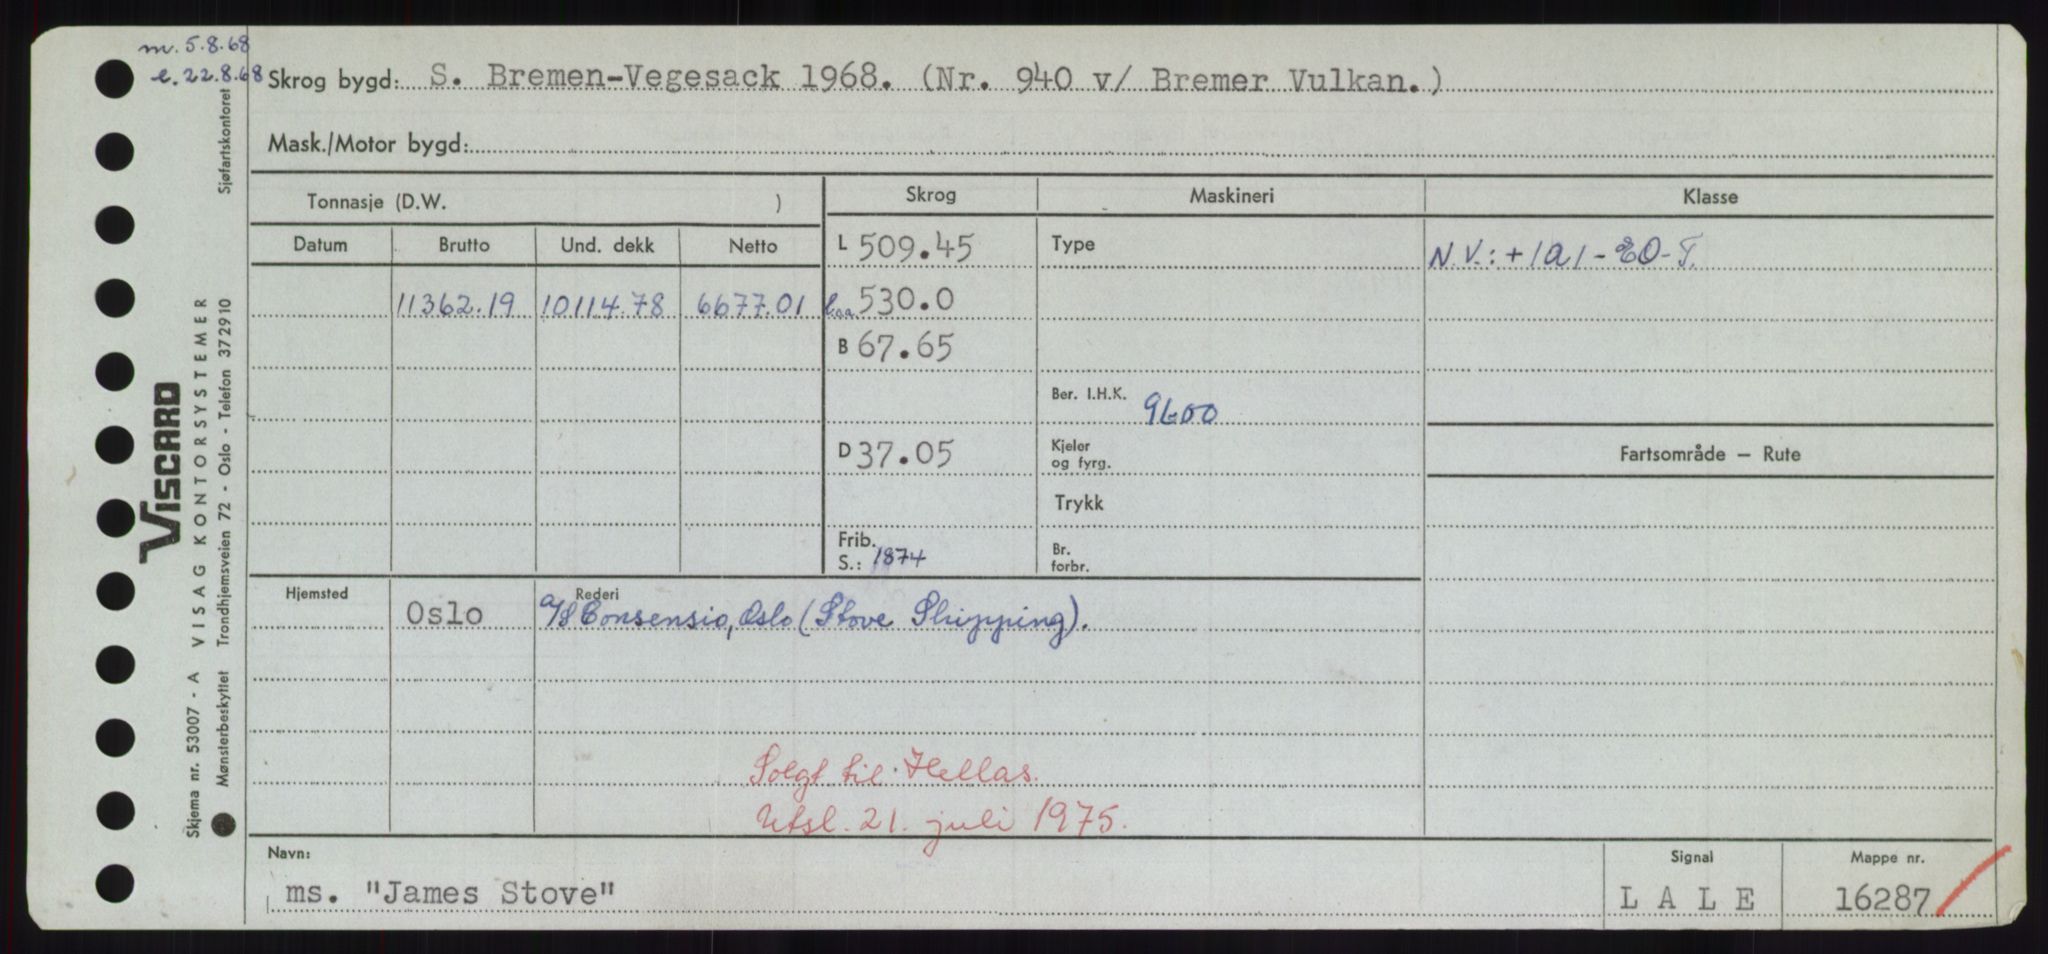 m. 5.8.68
e. 22.8.68
Skrog bygd: S. Bremen-Vegesack 1968. (Nr. 940 v/ Bremer Vulkan.)
Mask./Motor bygd:
Tonnasje (D.W. )
Skrog
Maskineri
Klasse
Datum Brutto Und. dekk Netto
L 509.45
Type
N.V.: +1A1-EO-F.
11362.19 10114.78 6677.01
L.o.a. 530.0
B 67.65
Ber. I.H.K. 9600
D 37.05
Kjeler
og fyrg.
Fartsområde — Rute
Trykk
Frib.
S.: 1874
Br.
forbr.
Hjemsted
Rederi
Oslo A/S Consensio, Oslo (Stove Shipping).
Solgt til Hellas.
Utsl. 21. juli 1975.
Navn:
ms. "James Stove"
Signal
LALE
Mappe nr.
16287
VISCARD
Skjema nr. 53007 - A VISAG KONTORSYSTEMER
Mønsterbeskyttet Trondhjemsveien 72 - Oslo - Telefon 372910 Sjøfartskontoret